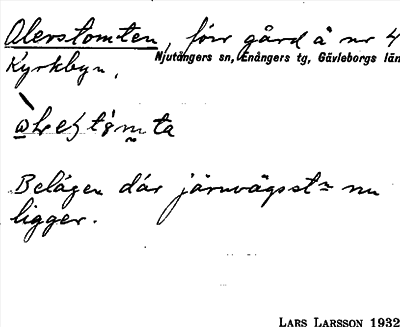 Olerstomten, förr gård å nr 4
Njutångers sn, Enångers tg, Gävleborgs län
Kyrkbyn,
Belägen där järnvägsstn nu
ligger.
LARS LARSSON 1932